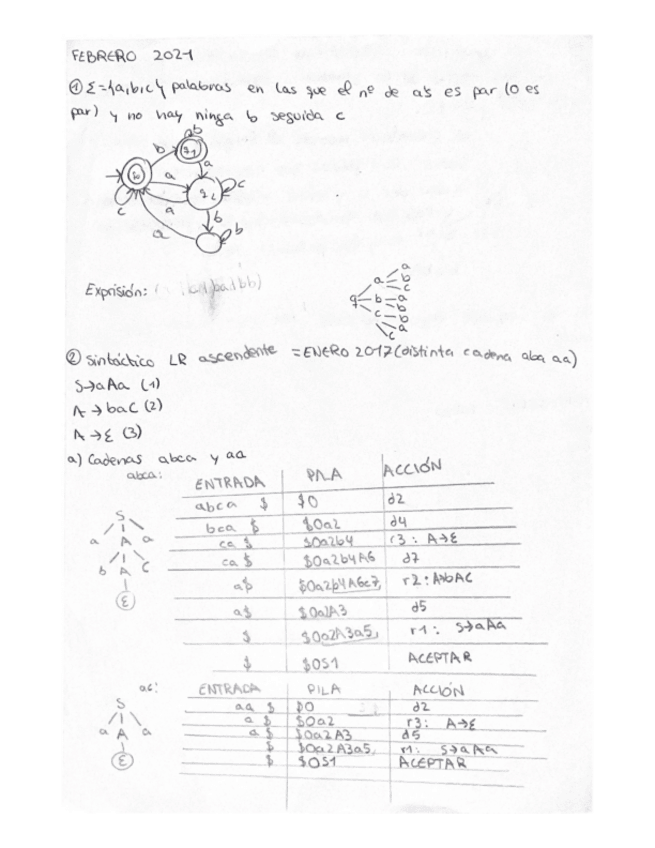 FEBRERO 2021
① Σ={a,b,c} palabras en las que el nº de a's es par (0 es
par) y no hay ninga b seguida c
b
b
q1
a
b
a
c
q2
c
a
b
a
b
Exprisión:
a
a
b
c
q
b
a
b
c
b
a
c
② Sintáctico LR ascendente = ENERO 2017 (distinta cadena aba aa)
S→aAa (1)
A→baC (2)
A→ε (3)
a) Cadenas abca y aa
abca:
ENTRADA PILA ACCIÓN
abca $ $0 d2
bca $ $0a2 d4
ca $ $0a2b4 r3: A→ε
ca $ $0a2b4A6 d7
a$ $0a2b4A6c7 r2: A→bAC
a$ $0a2A3 d5
$ $0a2A3a5 r1: S→aAa
$ $0S1 ACEPTAR
S
a A a
b A C
ε
ENTRADA PILA ACCIÓN
aa $ $0 d2
a $ $0a2 r3: A→ε
a $ $0a2A3 d5
$ $0a2A3a5 r1: S→aAa
$ $0S1 ACEPTAR
S
a A a
ε